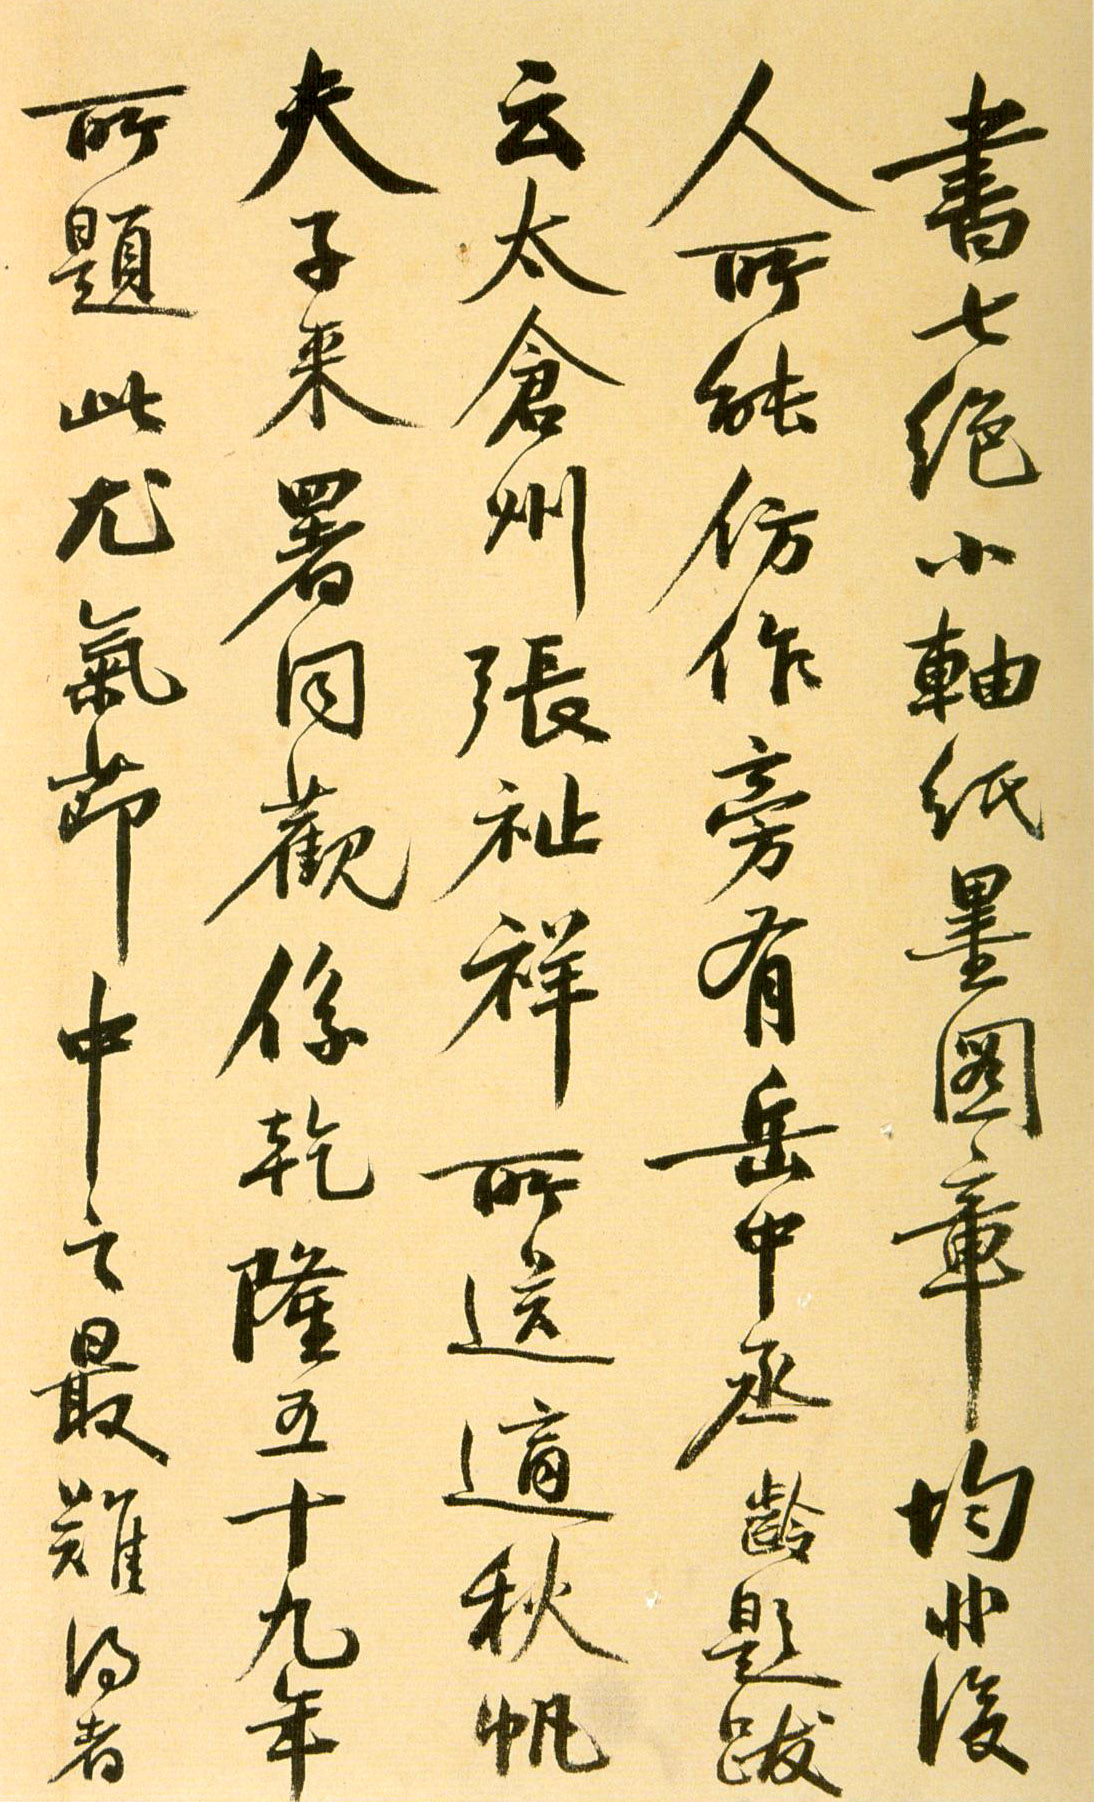 書七絕小軸紙墨圖章均非後
人所能仿作旁有岳中丞齡題跋
云太倉州張祉祥所送適秋帆
夫子來署同觀係乾隆五十九年
所題此尤氣節中之最難得者